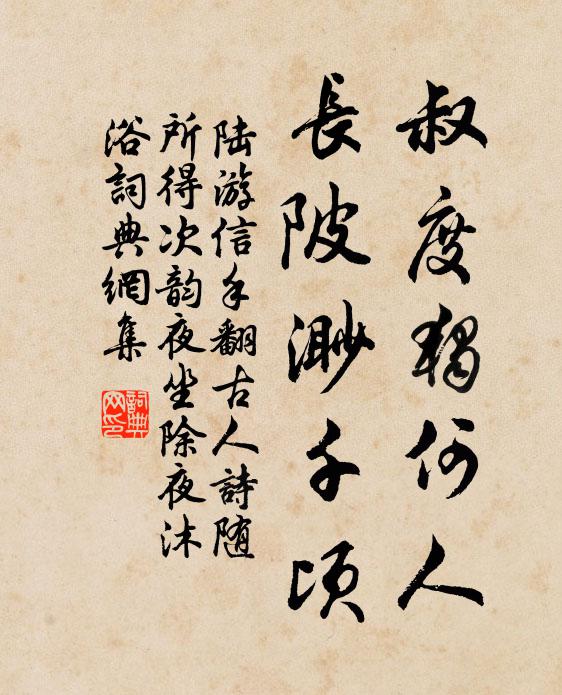 叔度獨何人
長陂渺千頃
陆游信手翻古人詩随
所得次韵夜坐除夜沐
浴詞典網集
詞典网印